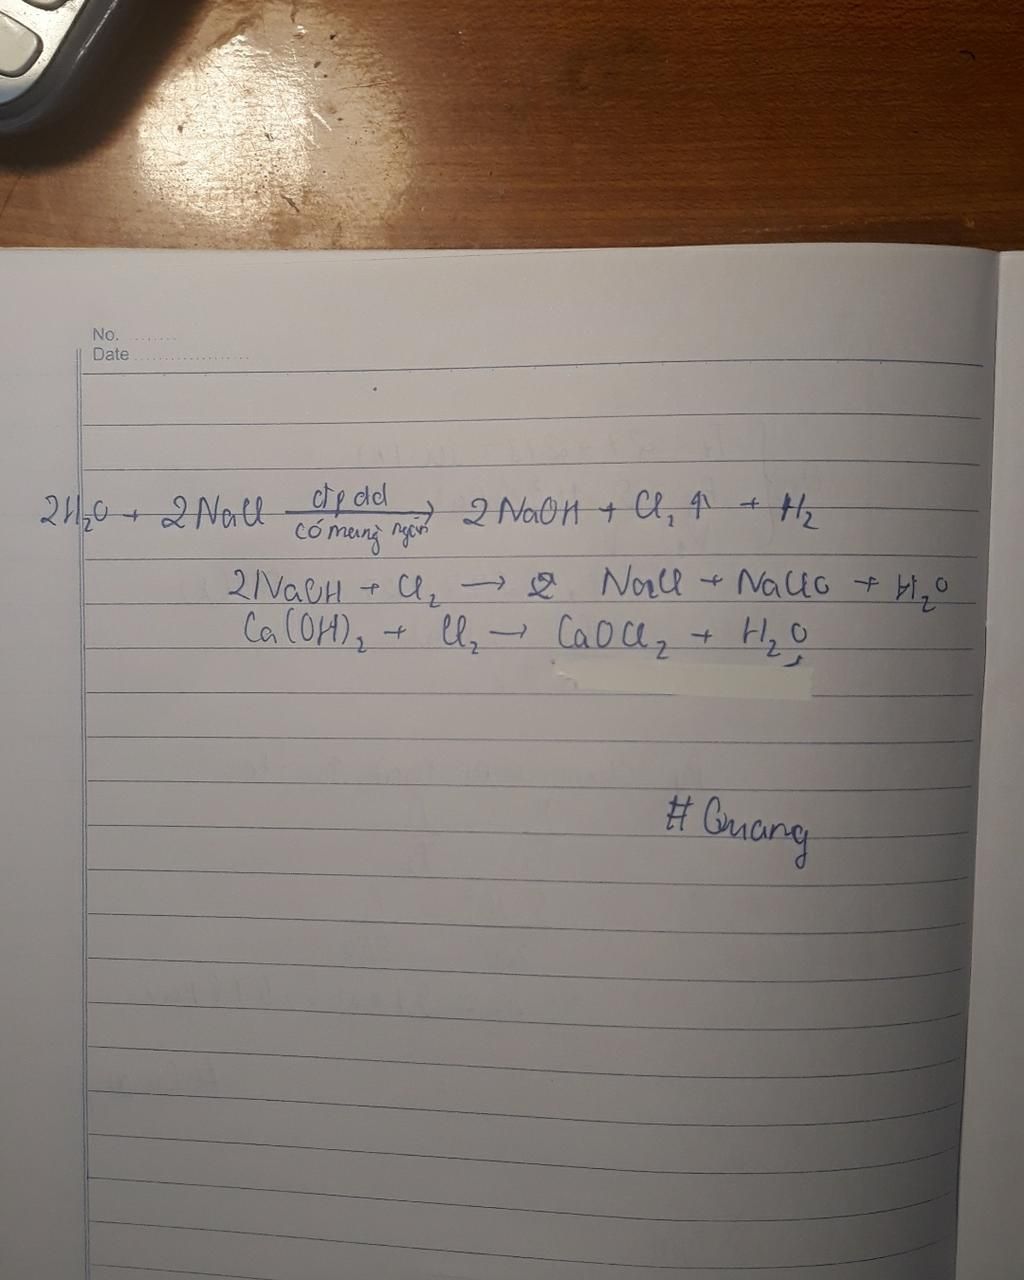 No. ........
Date ...................
2H₂O + 2NaCl đpdd → có màng ngăn 2NaOH + Cl₂ ↑ + H₂
2NaOH + Cl₂ → NaCl + NaClO + H₂O
Ca(OH)₂ + Cl₂ → CaOCl₂ + H₂O
# Quang